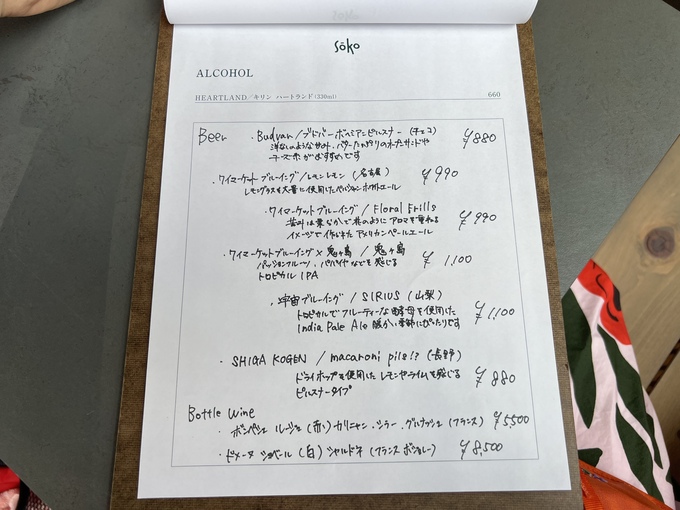 sōko
ALCOHOL
HEARTLAND／キリン ハートランド(330ml) 660
Beer ・Budvar／ブドバー ボヘミアンピルスナー (チェコ) ¥880
洋なしのような甘み、バターたっぷりのオープンサンドや
チーズ系がおすすめです
・ワイマーケットブルーイング／レモンレモン (名古屋) ¥990
レモングラスを大量に使用したベルジャンホワイトエール
・ワイマーケットブルーイング／Floral Frills ¥990
苦みは柔らかで花のようにアロマを重ねる
イメージで作られたアメリカンペールエール
・ワイマーケットブルーイング×鬼ヶ島／鬼ヶ島 ¥1,100
パッションフルーツ、パパイヤなどを感じる
トロピカルIPA
・宇宙ブルーイング／SIRIUS (山梨) ¥1,100
トロピカルでフルーティーな酵母を使用した
India Pale Ale 暖かい季節にぴったりです
・SHIGA KOGEN／macaroni pils!? (長野) ¥880
ドライホップを使用したレモンやライムを感じる
ピルスナータイプ
Bottle Wine
・ボンペシェ ルージュ (赤) カリニャン・シラー・グルナッシュ (フランス) ¥5500
・ドメーヌ ショベール (白) シャルドネ (フランス ボジョレー) ¥8,500